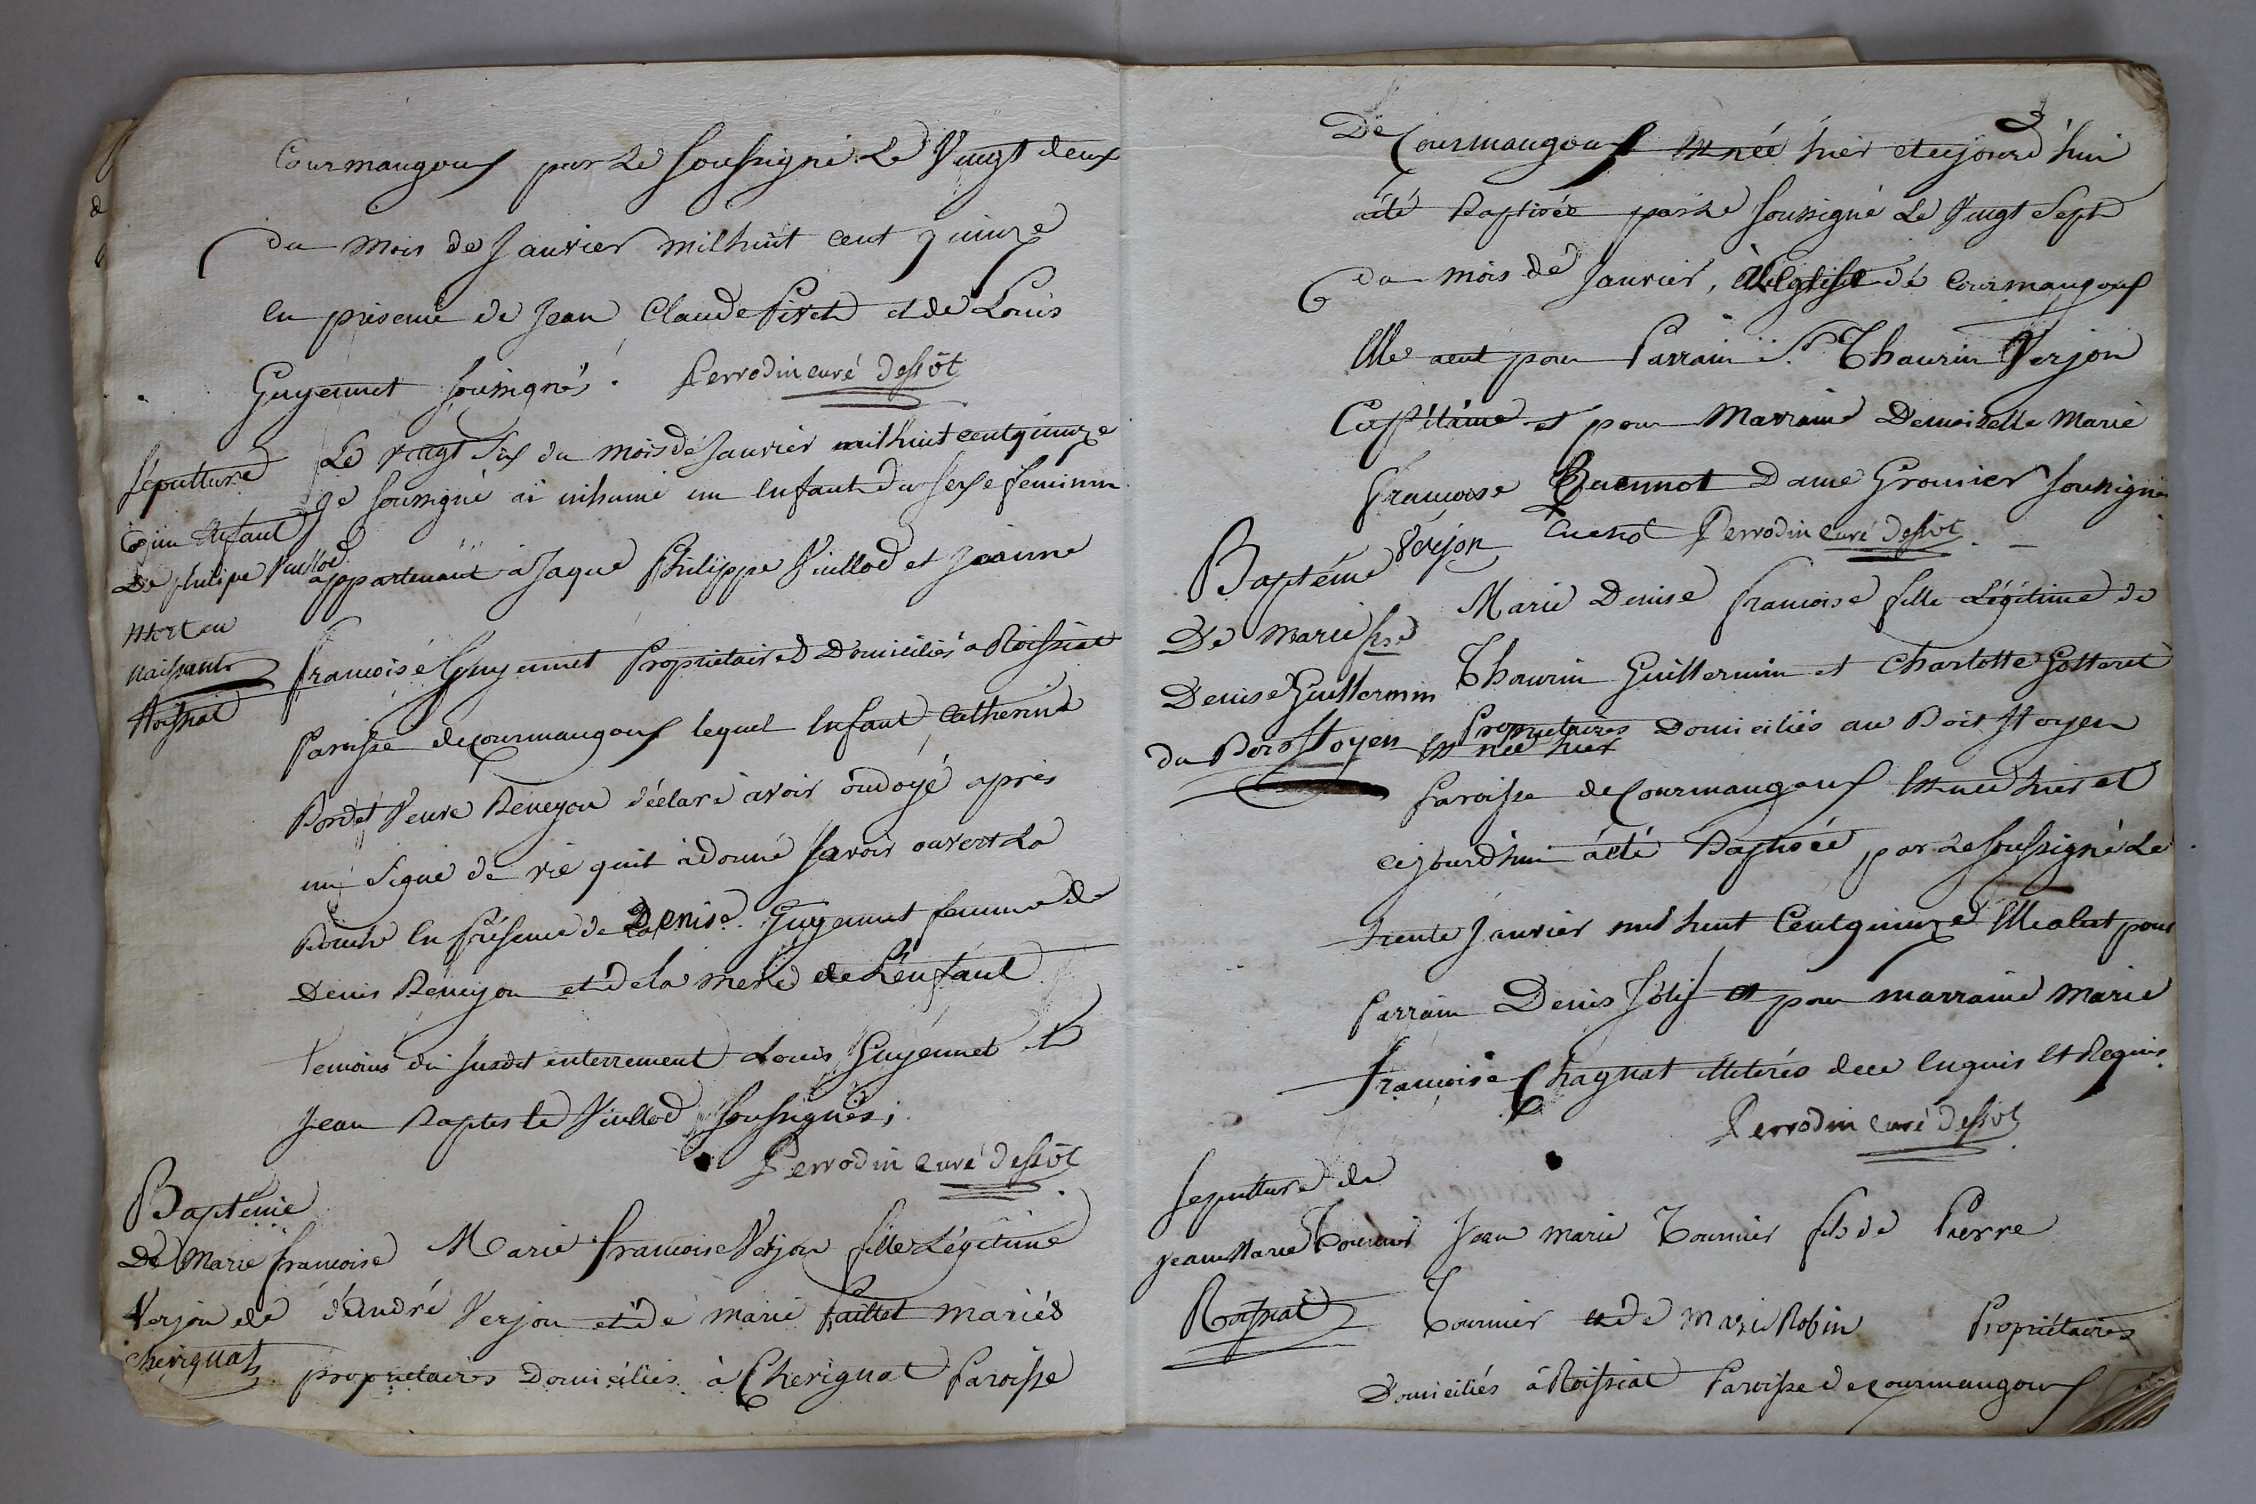 Courmangoux par Le Soussigné Le Vingt deux
du mois de Janvier mil huit cent quinze
en présence de Jean Claude Pivet et de Louis
Guyennet soussignés. Perrodin curé dessvt
Sépulture
d'un enfant
De philipe Vuillod
mort en
naissant
Roissiat
Le vingt Six du mois de Janvier mil huit cent quinze
Je soussigné ai inhumé un enfant du sexe feminin
appartenant à Jaque Philippe Vuillod et Jeanne
francoise Guyennet Propriétaires Domiciliés a Roissiat
Paroisse de courmangoux lequel Enfant Catherine
Bordet Veuve Reneyon déclare avoir ondoyé après
un signe de vie qu'il à donné Savoir ouvert La
Bouche En présence de Denise Guyennet femme de
Denis Reneyon et de la mere de L'enfant
temoins du susdit enterrement Louis Guyennet et
Jean Baptiste Vuillod soussignés;
Perrodin curé dessvt
Baptême
De Marie francoise
Verjon de
cherignat
Marie francoise Verjon fille Légitime
d'André Verjon et de marie faillet mariés
propriétaires Domiciliés à Cherignat Paroisse
De Courmangoux est née hier et cejourd'hui
a été Baptisée par Le soussigné Le Vingt Sept
du mois de Janvier, à L'église de Courmangoux
Elle a eut pour Parrain Sr. Thaurin Verjon
Capitaine et pour Marraine Demoiselle Marie
françoise Cuennot Dame Gromier soussignés
Verjon Cuenot Perrodin Curé dessvt
Baptême
De marie fse
Denise Guillermin
du Bois Stoyen
Marie Denise francoise fille Légitime de
Thaurin Guillermin et Charlotte Gottaret
Propriétaires Domiciliés au Bois Stoyen
est née hier
Paroisse de Courmangoux Est née hier et
cejourdhui a été Baptisée par Le soussigné Le
trente Janvier mil huit Cent quinze Elle a eut pour
Parrain Denis Jolif et pour marraine Marie
françoise Chagnat illiterés de ce Enquis Et Requis.
Perrodin Curé dessvt
Sepulture de
Jean Marie Tournier
Roissiat
Jean marie Tournier fils de Pierre
Tournier et de Marie Robin Propriétaires
Domiciliés à Roissiat Paroisse de courmangoux